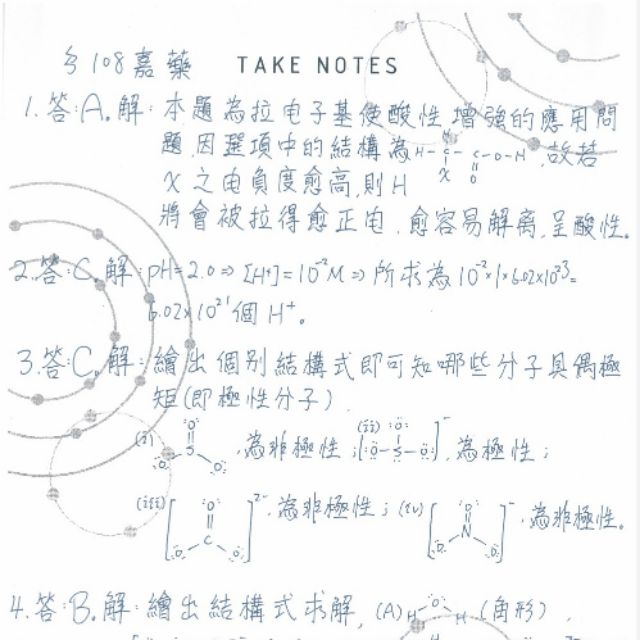 §108嘉藥 TAKE NOTES
1.答:A。解:本題為拉电子基使酸性增強的應用問
題,因選項中的結構為 H-C-C-O-H,故若
H X O
X之电負度愈高,則H
將會被拉得愈正电,愈容易解离,呈酸性。
2.答:C。解:pH=2.0⇒[H⁺]=10⁻²M⇒所求為10⁻²×1×6.02×10²³=
6.02×10²¹個H⁺。
3.答:C。解:繪出個別結構式即可知哪些分子具偶極
矩(即極性分子)
(i) O S O O ,為非極性;(ii) [O-S-O O]⁻,為極性;
(iii) [O C O O]²⁻,為非極性;(iv) [O N O O]⁻,為非極性。
4.答:B。解:繪出結構式求解,(A) H O H (角形),